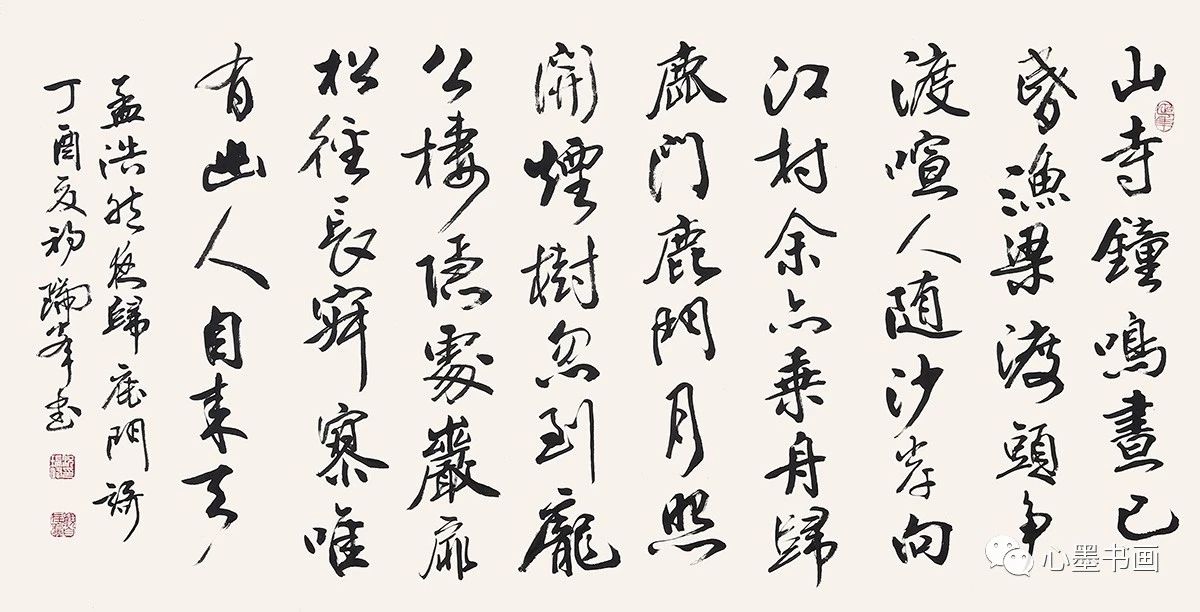 山寺鐘鳴晝已
昏漁梁渡頭争
渡喧人随沙岸向
江村余亦乗舟歸
鹿門鹿門月照
開煙樹忽到龐
公棲隱處巖扉
松徑長寂寥唯
有幽人自来去
孟浩然夜歸鹿門詩
丁酉夏初瑞峯書
心墨书画